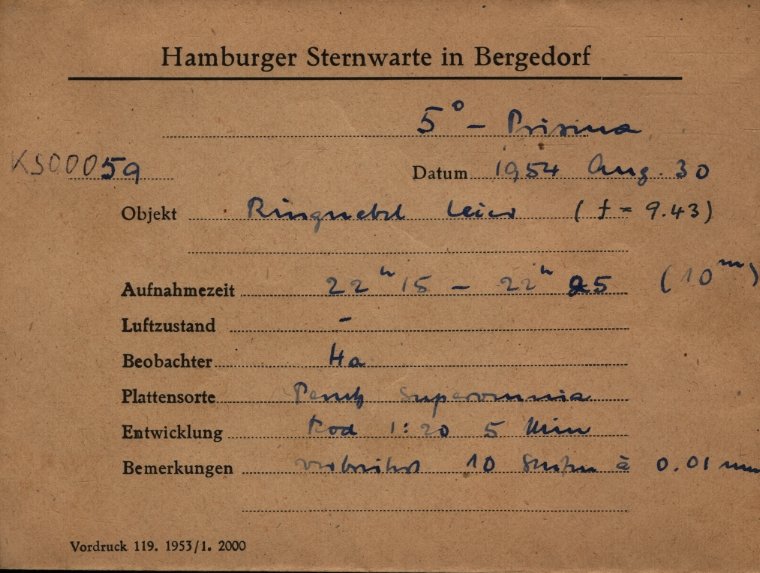 Hamburger Sternwarte in Bergedorf
5° – Prisma
KS00059
Datum 1954 Aug. 30
Objekt Ringnebel Leier (f = 9.43)
Aufnahmezeit 22ʰ15 – 22ʰ25 (10ᵐ)
Luftzustand –
Beobachter Ha
Plattensorte Perutz
Entwicklung Rod 1:20 5 Min
Bemerkungen verbreitert 10 Stufen à 0.01 mm
Vordruck 119. 1953/1. 2000